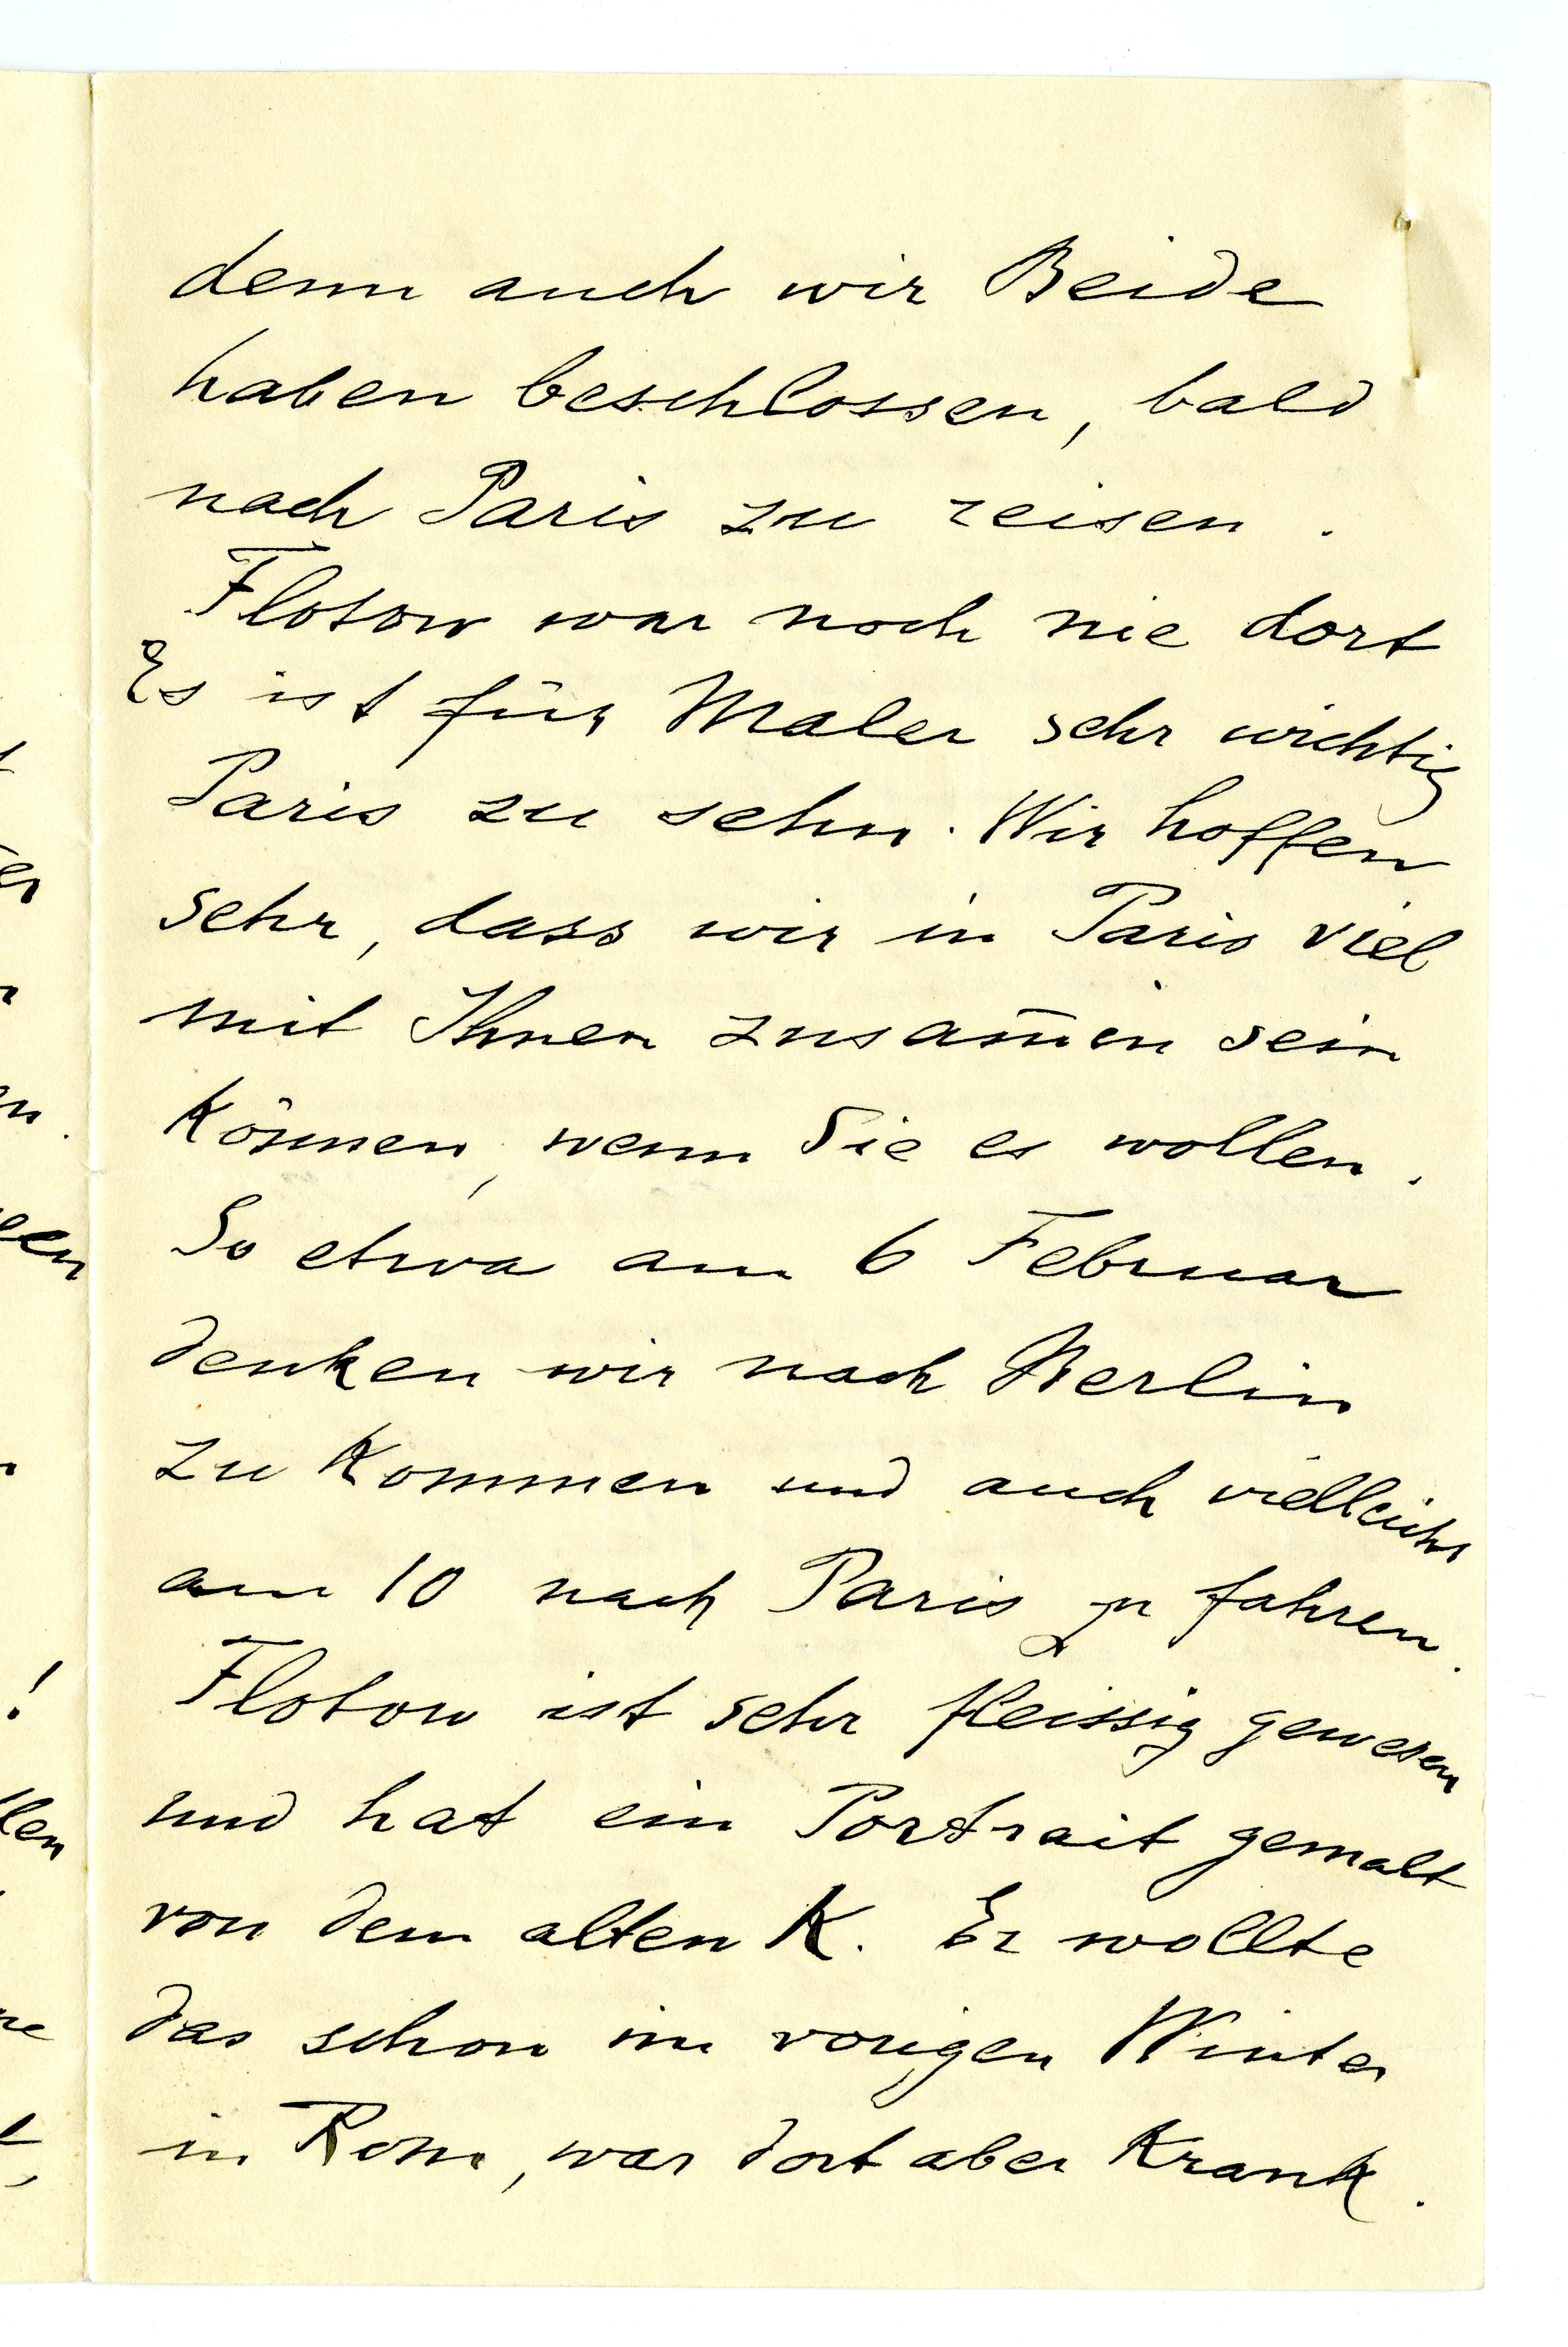 denn auch wir Beide
haben beschlossen, bald
nach Paris zu reisen.
Flotow war noch nie dort
Es ist für Maler sehr wichtig
Paris zu sehn. Wir hoffen
sehr, dass wir in Paris viel
mit Ihnen zusam̄en sein
Können, wenn Sie es wollen.
So etwa am 6 Februar
denken wir nach Berlin
zu Kommen und auch vielleicht
am 10 nach Paris zu fahren.
Flotow ist sehr fleissig gewesen
und hat ein Portrait gemalt
von dem alten K. Er wollte
das schon im vorigen Winter
in Rom, war dort aber Krank.